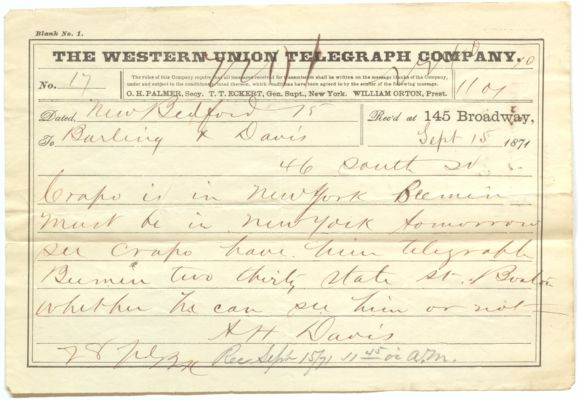 Blank No. 1.
THE WESTERN UNION TELEGRAPH COMPANY.
No. 17
The rules of this Company require that all messages received for transmission shall be written on the message blanks of the Company, under and subject to the conditions printed thereon, which conditions have been agreed to by the sender of the following message.
O. H. PALMER, Secy. T. T. ECKERT, Gen. Supt., New York. WILLIAM ORTON, Prest.
Dated, New Bedford 15
Rec'd at 145 Broadway,
To Barling & Davis
Sept 15 1871
46 South St
Crapo is in New York Beemin
must be in New York tomorrow
see Crapo have him telegraph
Beemen two thirty state st. Boston
whether he can see him or not
A H Davis
28 Rec Sept 15/71 11 45 A.M.